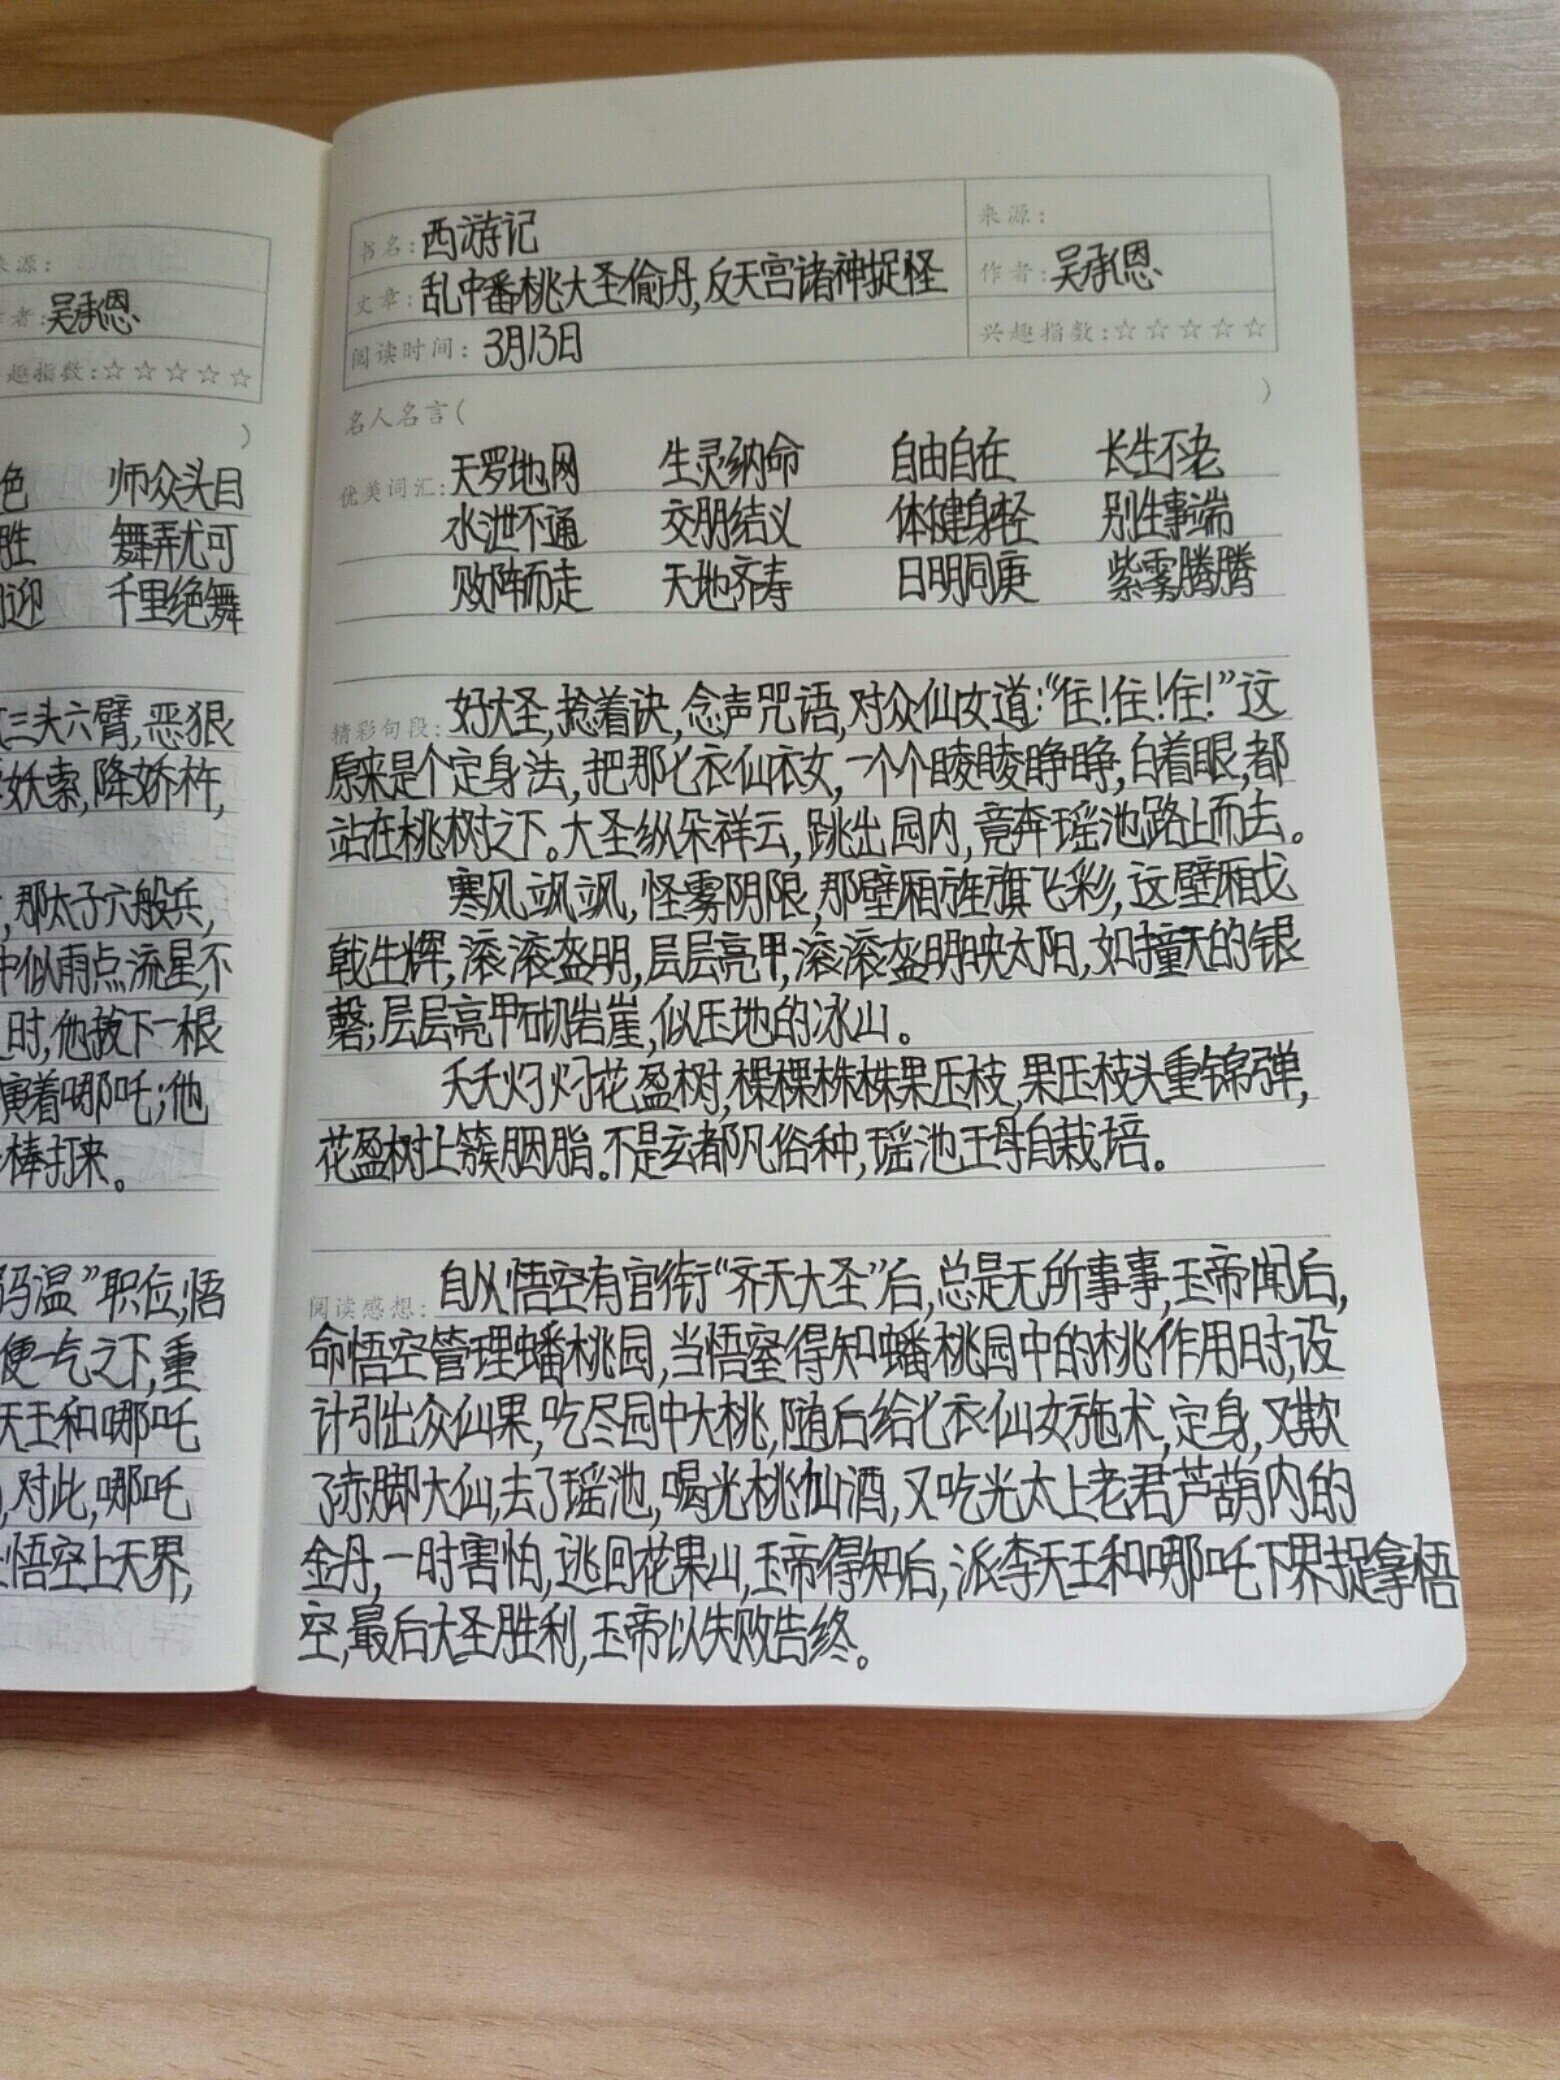 来源:
者:吴承恩
趣指数:☆☆☆☆☆
)
色 师众头目
胜 舞弄尤可
迎 千里绝舞
三头六臂,恶狠
妖索,降妖杵,
,那太子六般兵,
中似雨点流星,不
时,他拔下一根
演着哪吒;他
棒打来。
温”职位,悟
便一气之下,重
天王和哪吒
,对此,哪吒
悟空上天界,
书名:西游记
来源:
文章:乱中番桃大圣偷丹,反天宫诸神捉怪
作者:吴承恩
阅读时间:3月13日
兴趣指数:☆☆☆☆☆
名人名言( )
优美词汇:天罗地网 生灵纳命 自由自在 长生不老
水泄不通 交朋结义 体健身轻 别生事端
败阵而走 天地齐寿 日明同庚 紫雾腾腾
精彩句段:好大圣,捻着诀,念声咒语,对众仙女道:“住!住!住!”这
原来是个定身法,把那七衣仙衣女,一个个睖睖睁睁,白着眼,都
站在桃树之下。大圣纵朵祥云,跳出园内,竟奔瑶池路上而去。
寒风飒飒,怪雾阴限,那壁厢旌旗飞彩,这壁厢戈
戟生辉,滚滚盔明,层层亮甲,滚滚盔明映太阳,如撞天的银
磬;层层亮甲砌岩崖,似压地的冰山。
夭夭灼灼花盈树,棵棵株株果压枝,果压枝头重锦弹,
花盈树上簇胭脂。不是玄都凡俗种,瑶池王母自栽培。
阅读感想:自从悟空有官衔“齐天大圣”后,总是无所事事,玉帝闻后,
命悟空管理蟠桃园,当悟空得知蟠桃园中的桃作用时,设
计引出众仙果,吃尽园中大桃,随后给七衣仙女施术,定身,又欺
了赤脚大仙,去了瑶池,喝光桃仙酒,又吃光太上老君芦葫内的
金丹,一时害怕,逃回花果山,玉帝得知后,派李天王和哪吒下界捉拿悟
空,最后大圣胜利,玉帝以失败告终。